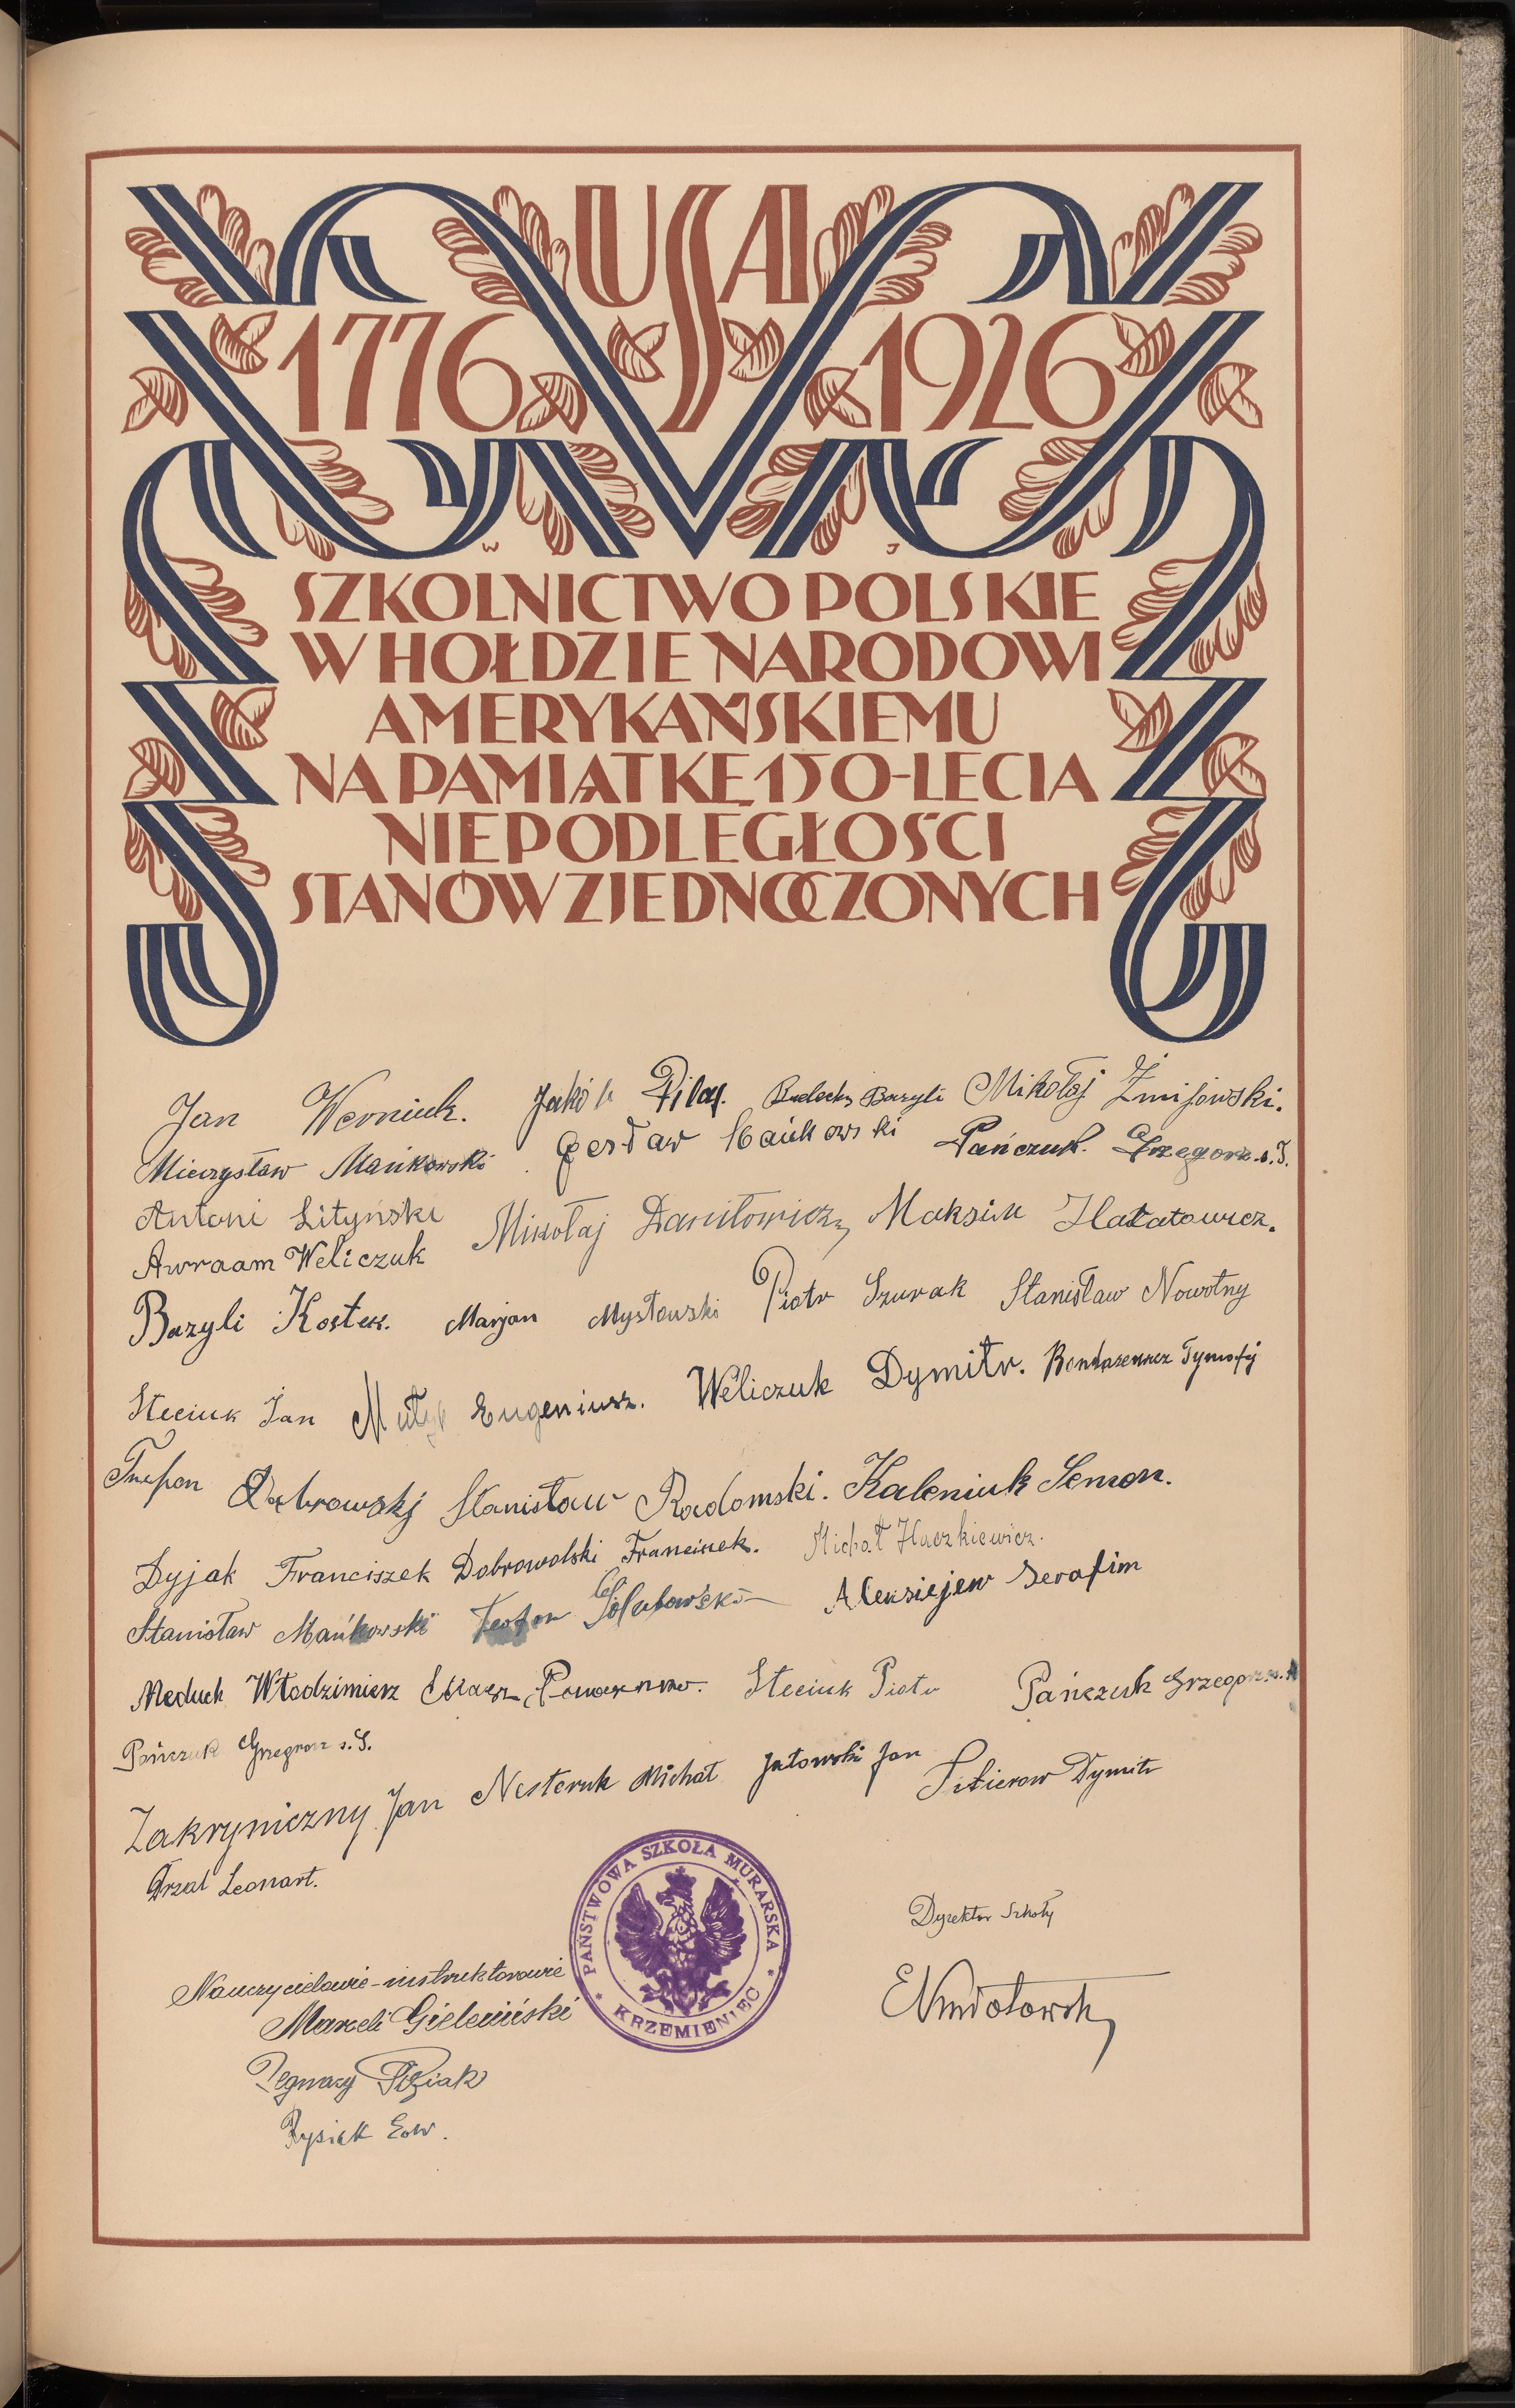 USA
1776 1926
W J
SZKOLNICTWO POLSKIE
W HOŁDZIE NARODOWI
AMERYKAŃSKIEMU
NA PAMIĄTKĘ 150-LECIA
NIEPODLEGŁOŚCI
STANÓW ZJEDNOCZONYCH
Jan Werniuk. Jakób Pilaj. Rudecky Bazyli Mikołaj Żmijowski.
Mieczysław Mańkowski. Czesław Mańkowski Pańczuk Grzegorz s. J.
Antoni Lityński Mikołaj Daniłowicz, Maksim Hałatowicz.
Awraam Weliczuk
Bazyli Kostek. Marjan Mysłowski Piotr Szurak Stanisław Nowotny
Steciuk Jan Eugeniusz. Weliczuk Dymitr. Tymofij
Dąbrowskj Stanisław Radomski. Kaleniuk Semon.
Dyjak Franciszek Dobrowolski Franciszek. Michał Haczkiewicz.
Stanisław Mańkowski Teofan Gołubowski Aleksiejew Serafim
Meduch Włodzimierz Steciuk Piotr Pańczuk Grzegorz s. A
Pańczuk Grzegorz s. S.
Zakryniczny Jan Nesteruk Michał Jatowski Jan Dymitr
Drzal Leonart.
PAŃSTWOWA SZKOŁA MURARSKA
* KRZEMIENIEC *
Dyrektor Szkoły
Nauczyciele-instruktorowie
Marceli Gieleciński
Ignacy
Rysiek Edw.